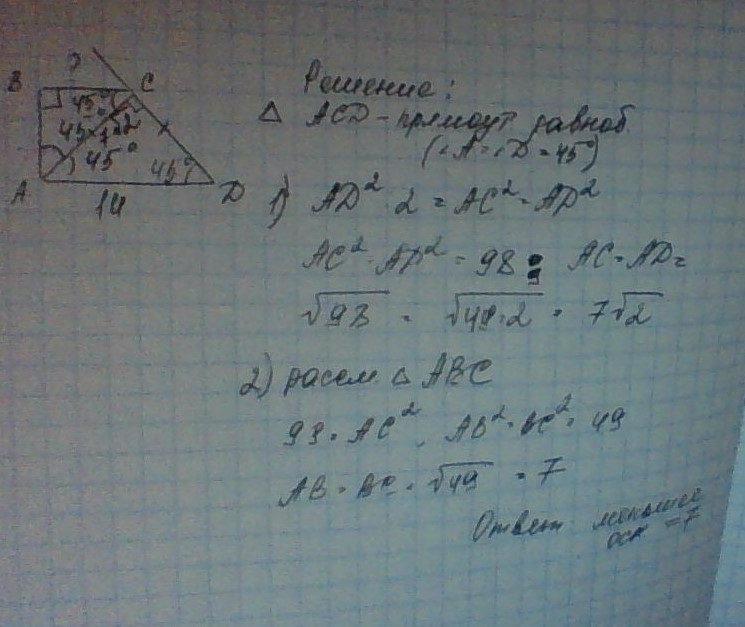 ? 
B C
45°
45° 7√2
45° 45°
A D
14
Решение:
△ ACD - прямоуг равноб.
(∠A=∠D=45°)
1) AD² : 2 = AC² = AD²
AC² = AD² = 98; AC = AD =
√98 = √49·2 = 7√2
2) рассм. △ ABC
98 = AC², AB² = BC² = 49
AB = BC = √49 = 7
Ответ: меньшее
осн = 7